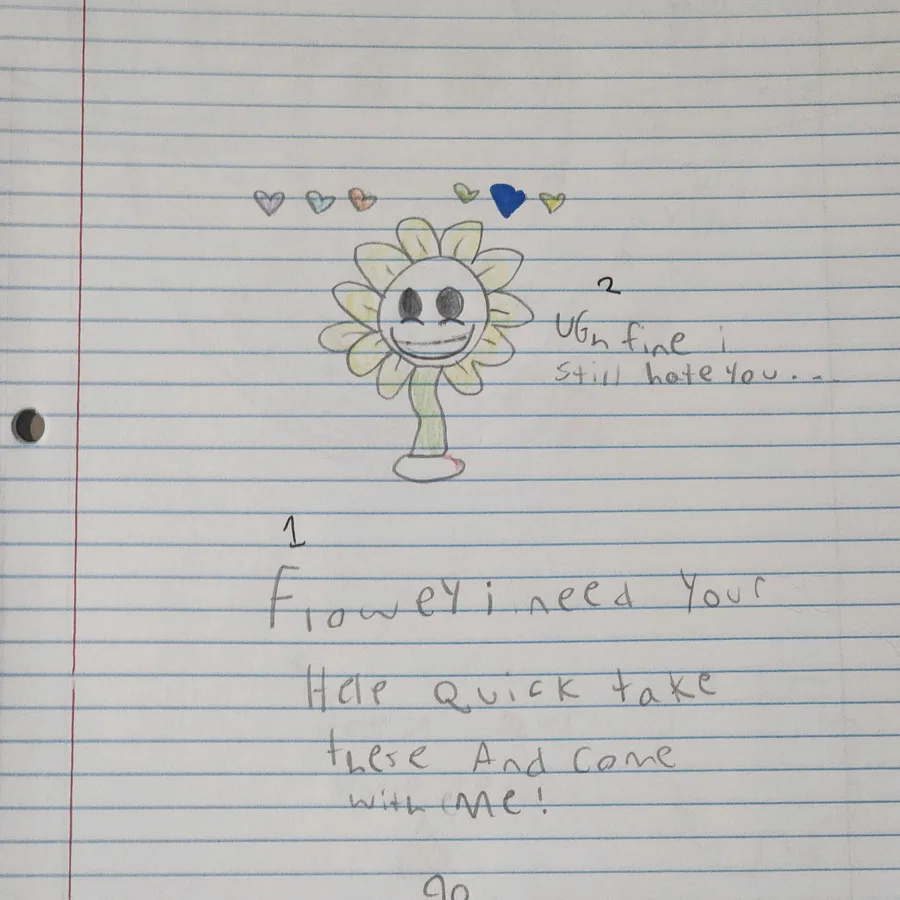 2
UGh fine i
still hate you...
1
Flowey i need Your
Help Quick take
these And Come
with Me!
90